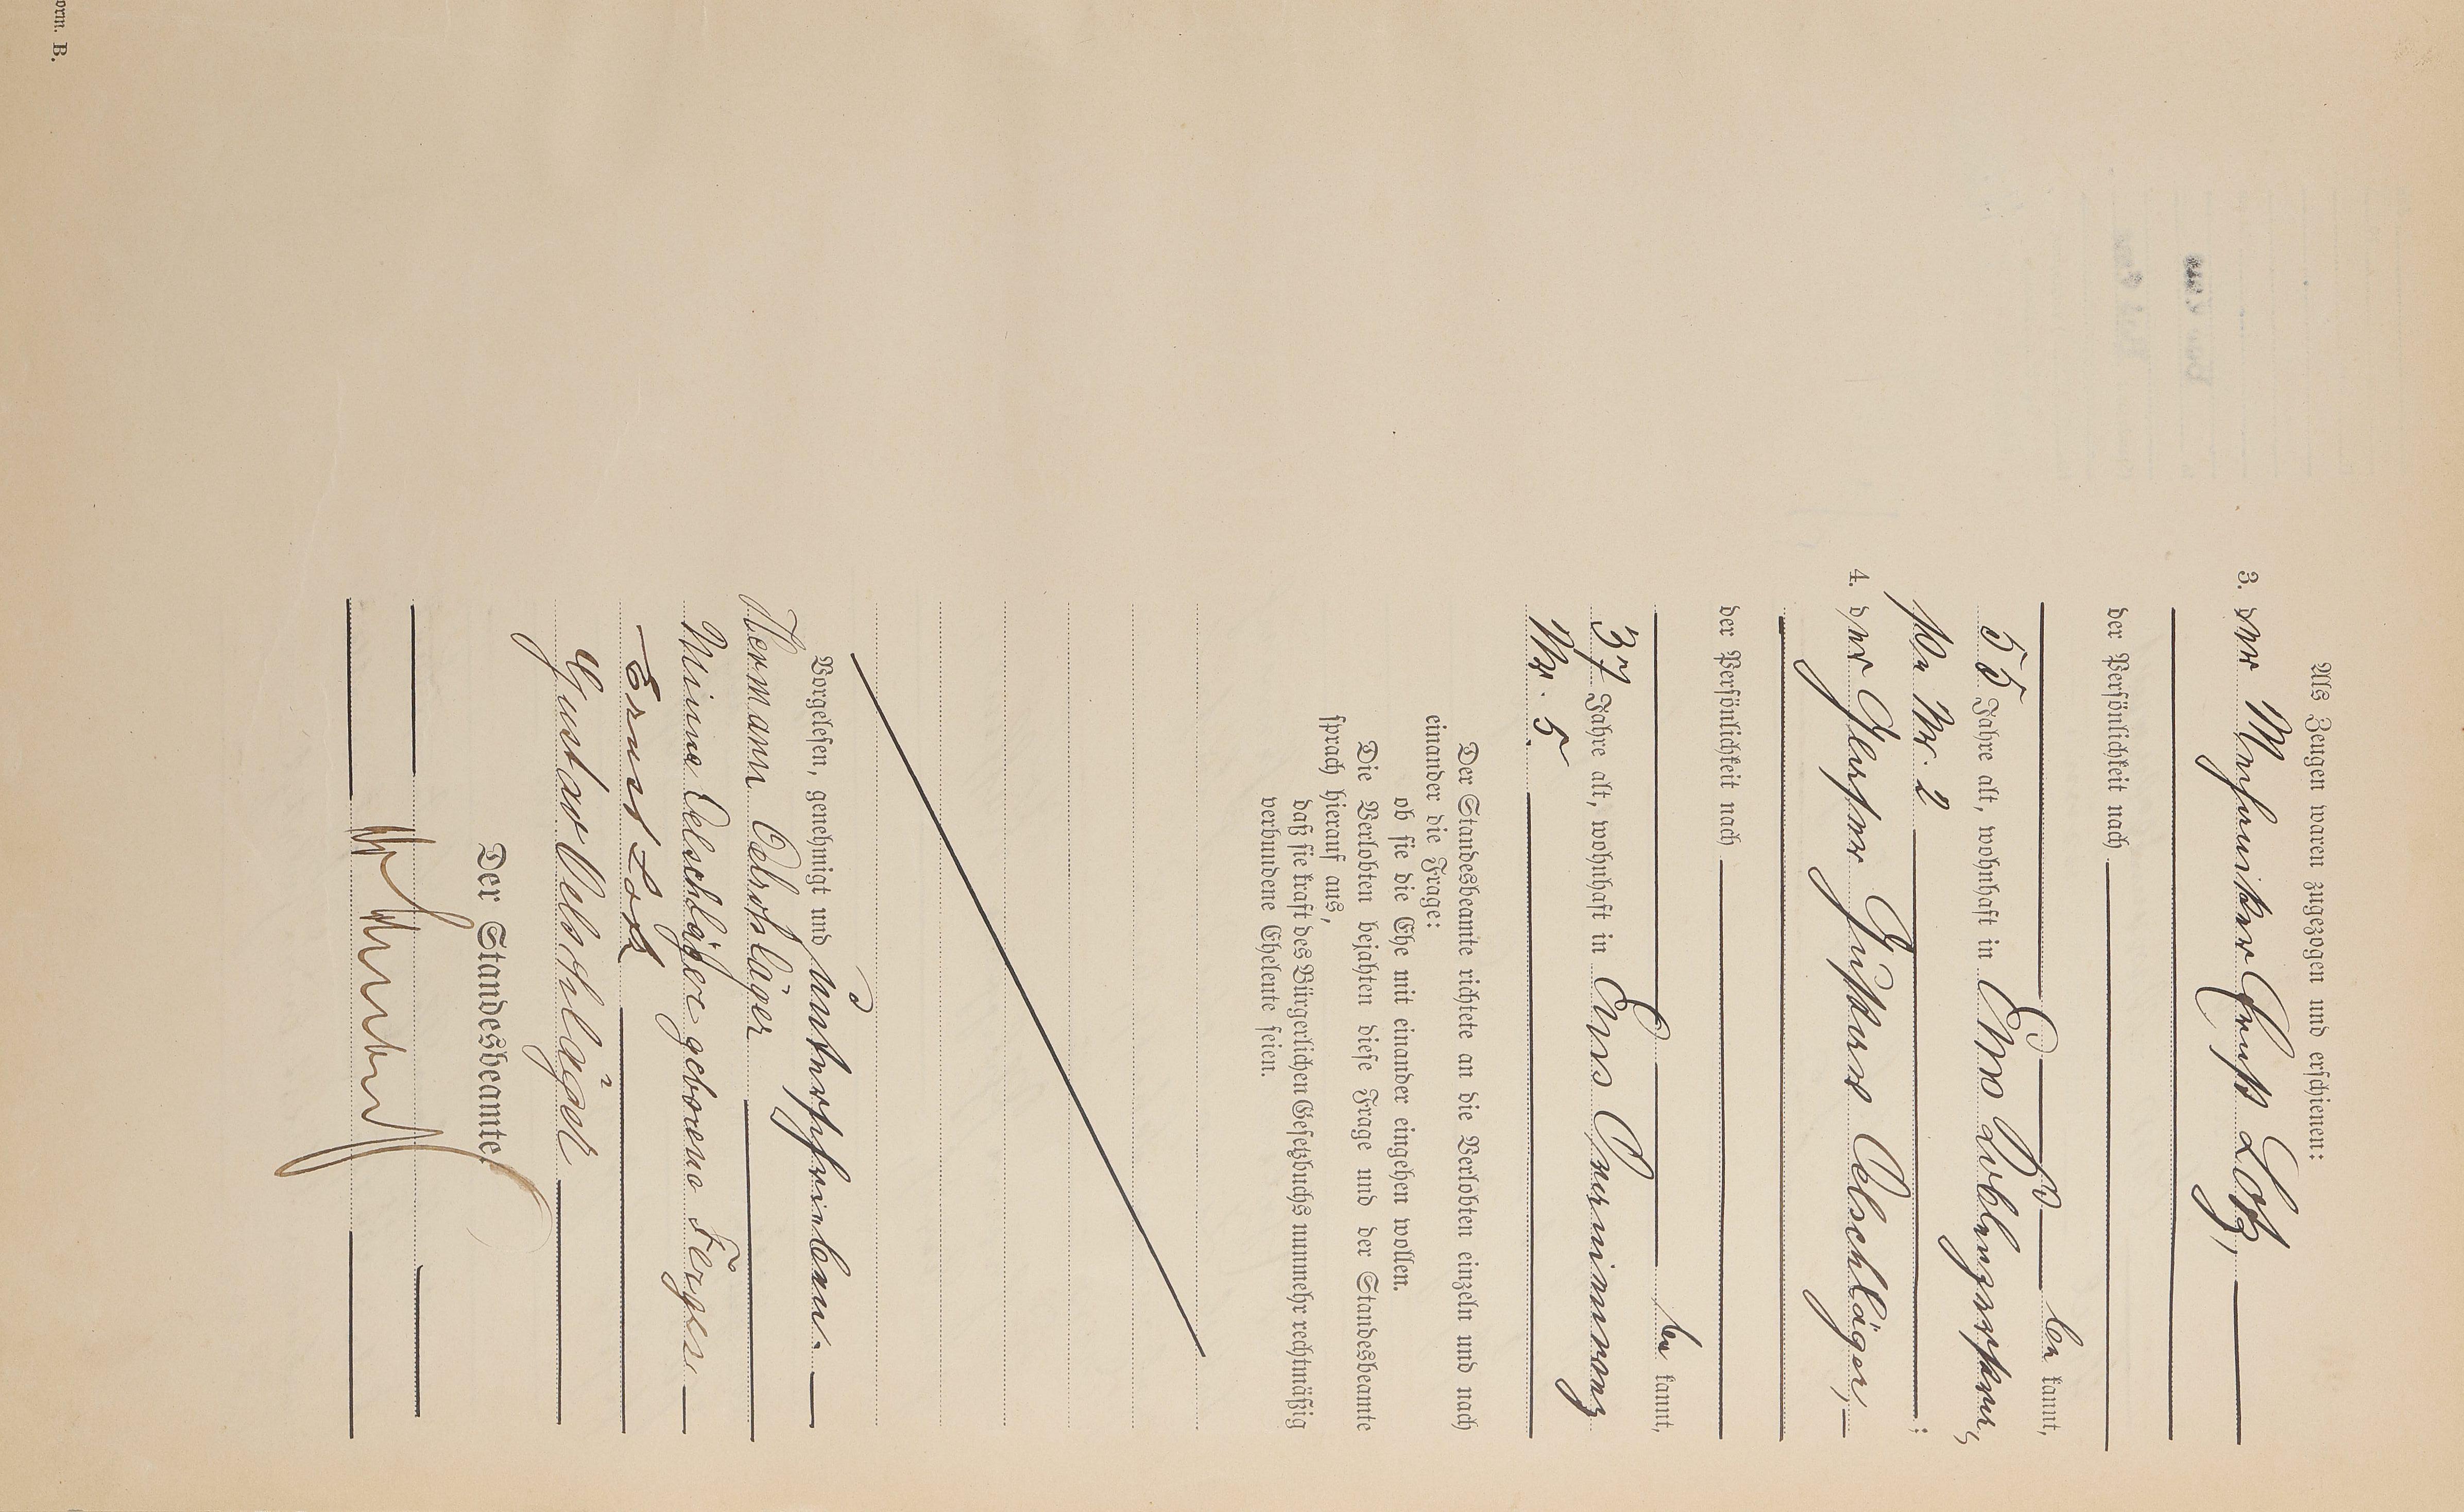 Als Zeugen waren zugezogen und erschienen:
3. der Mechaniker Ernst Lotz,
der Persönlichkeit nach
be kannt,
55 Jahre alt, wohnhaft in Ems
Nr. 2 ;
4. der Glaser Gustav Oelschläger,
der Persönlichkeit nach
be kannt,
37 Jahre alt, wohnhaft in Ems
Nr. 5
Der Standesbeamte richtete an die Verlobten einzeln und nach
einander die Frage:
ob sie die Ehe mit einander eingehen wollen.
Die Verlobten bejahten diese Frage und der Standesbeamte
sprach hierauf aus,
daß sie kraft des Bürgerlichen Gesetzbuchs nunmehr rechtmäßig
verbundene Eheleute seien.
Vorgelesen, genehmigt und unterschrieben.
Hermann Oelschläger
Mina Oelschläger geborene
Ernst Lotz
Gustav Oelschläger
Der Standesbeamte
orm. B.